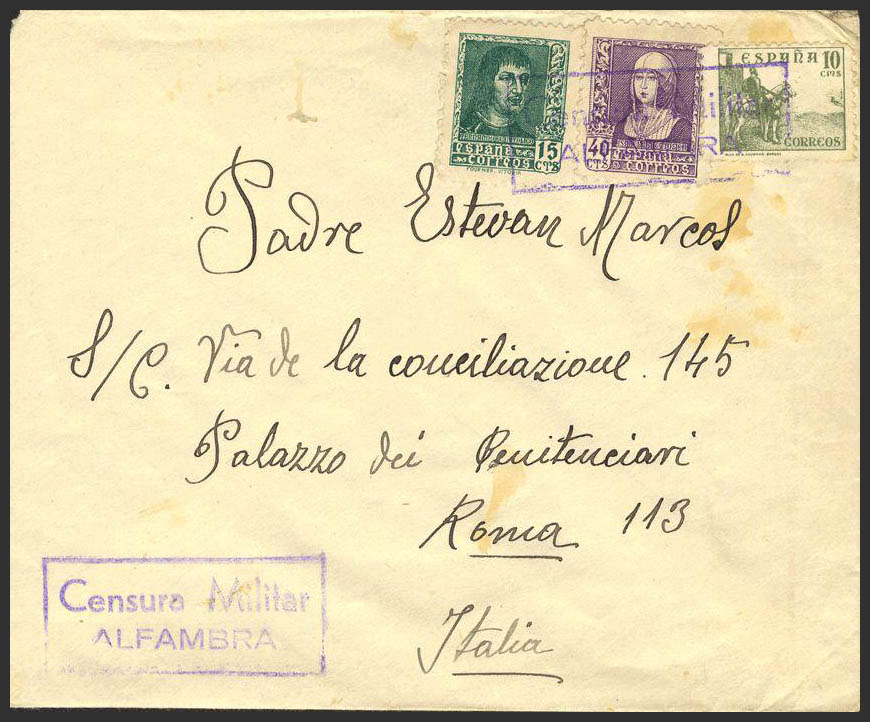 ESPAÑA
CORREOS
15
CTS
FOURNIER. VITORIA
40
CTS
ESPAÑA
CORREOS
ESPAÑA 10
CTS
CORREOS
Censura Militar
ALFAMBRA
Padre Estevan Marcos
S/C. Via de la conciliazione. 145
Palazzo dei Penitenciari
Roma 113
Italia
Censura Militar
ALFAMBRA